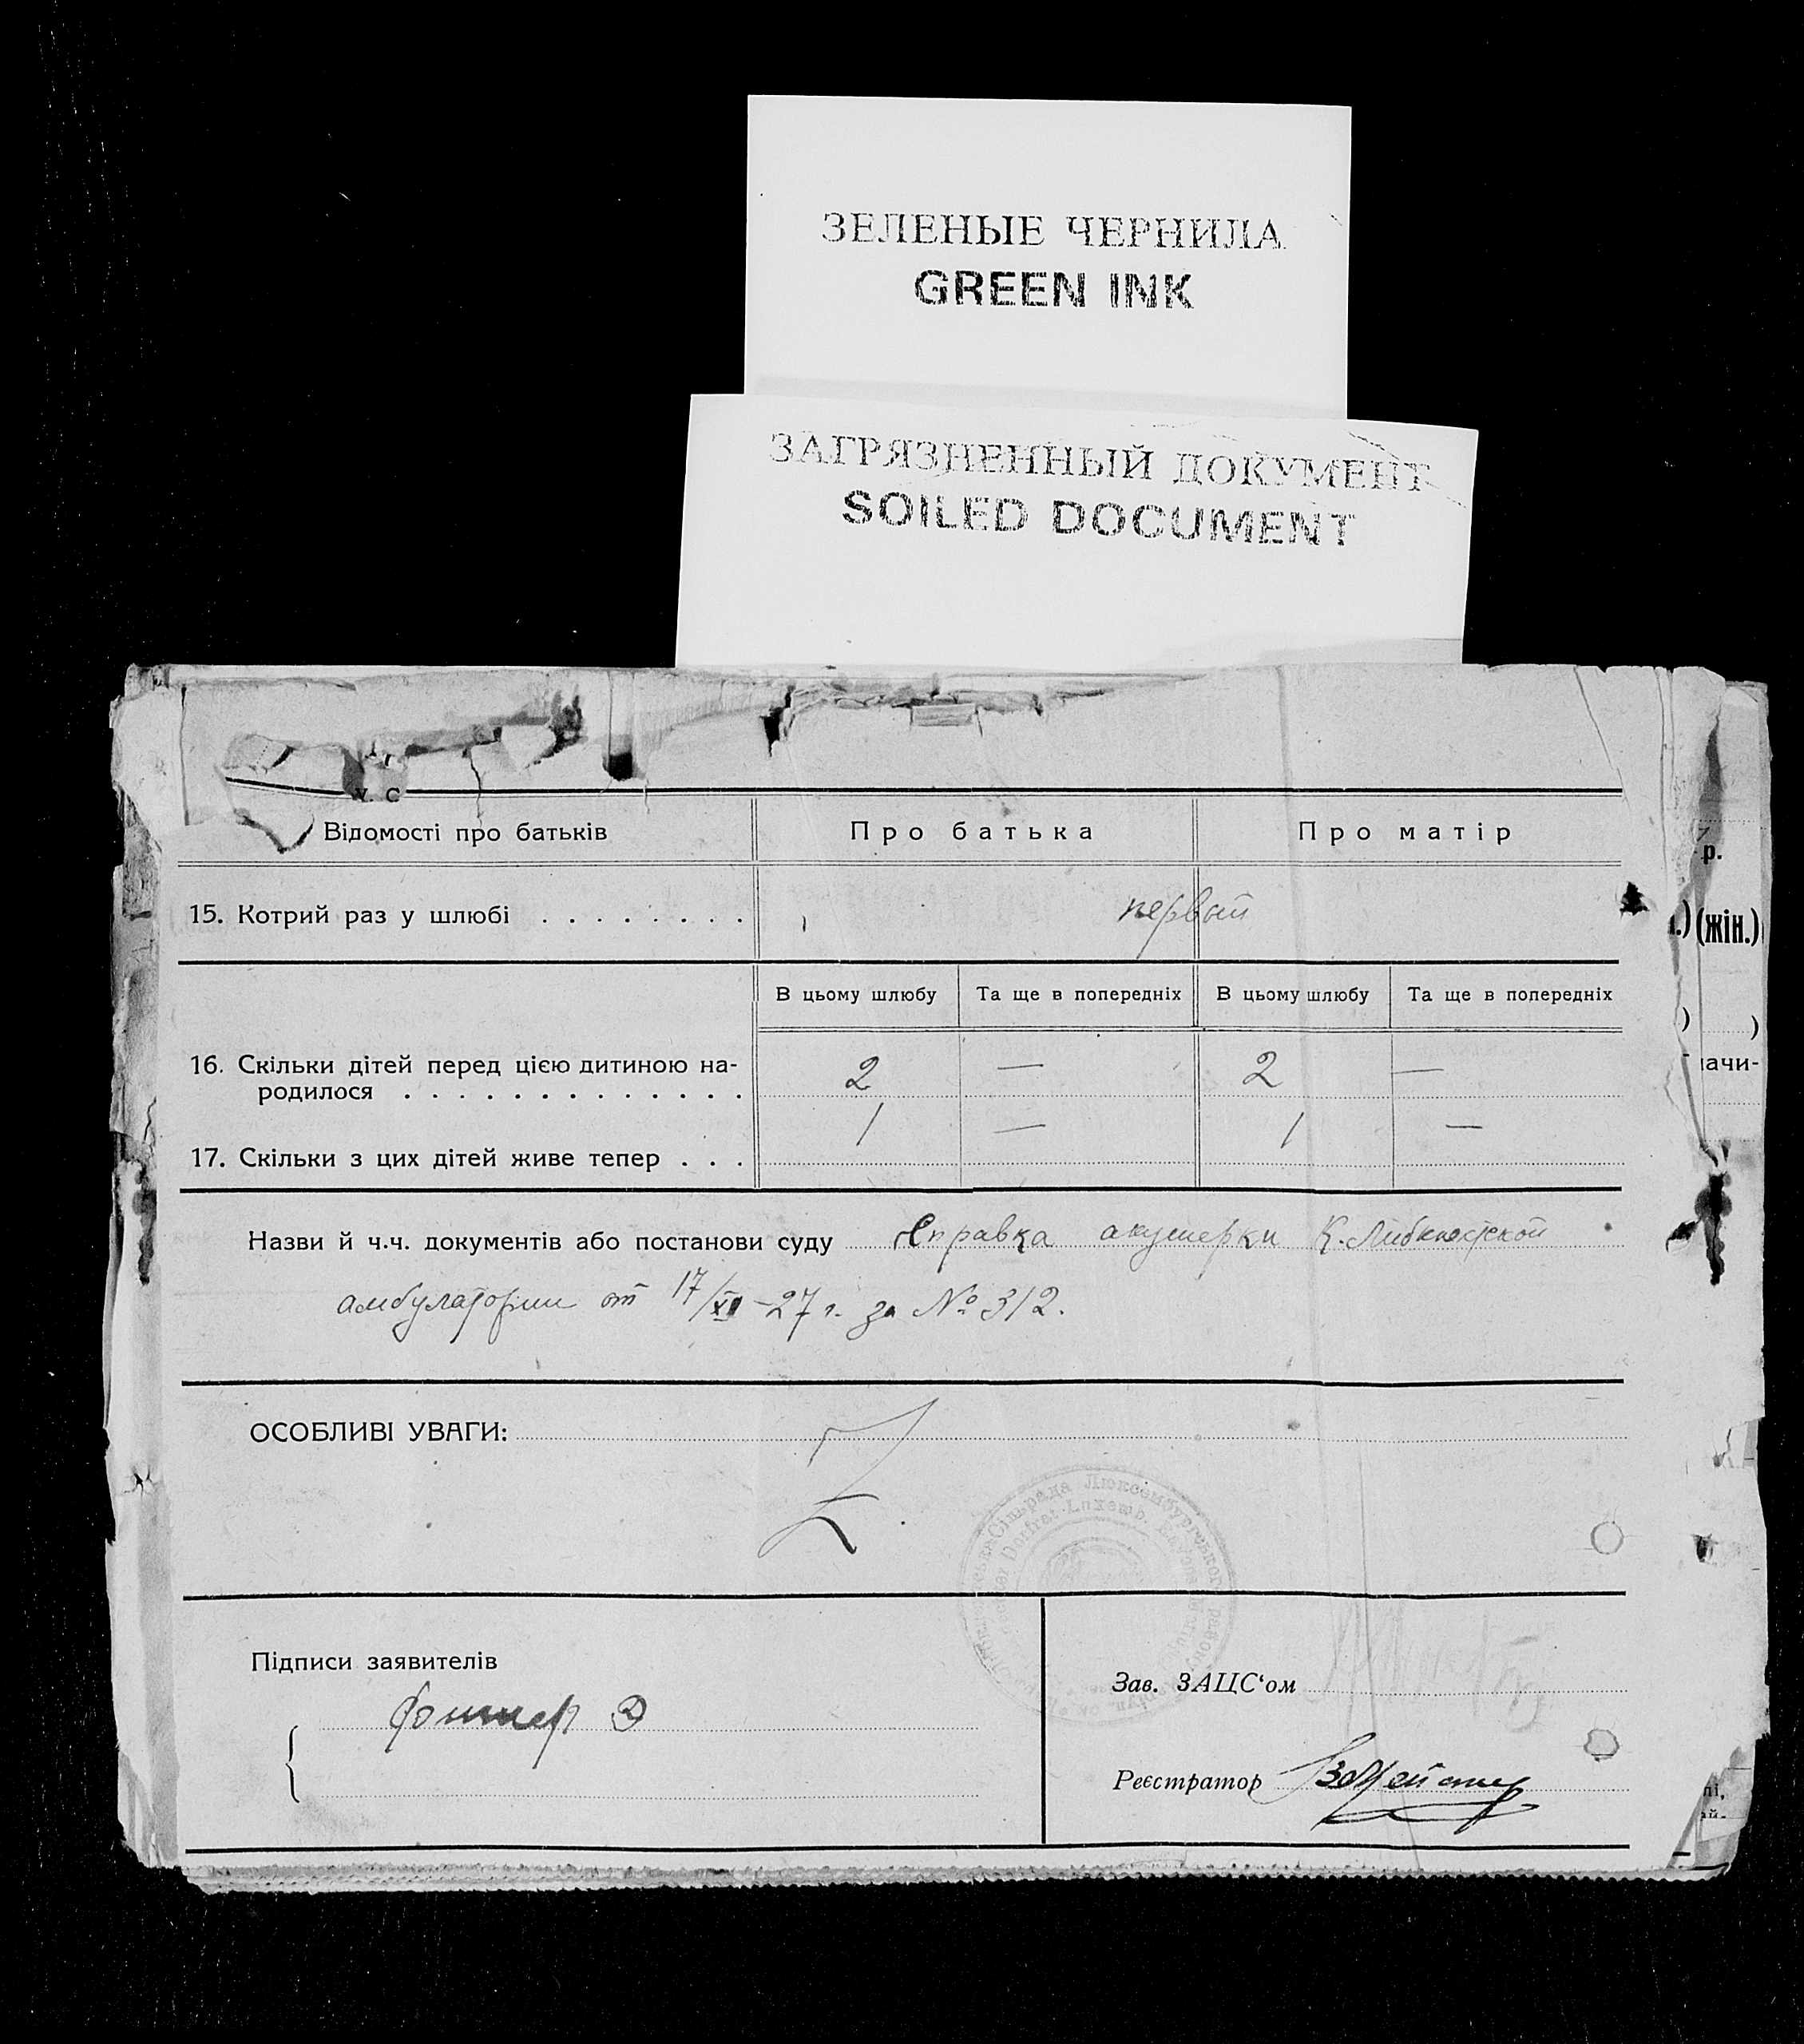 ЗЕЛЕНЫЕ ЧЕРНИЛА
GREEN INK
ЗАГРЯЗНЕННЫЙ ДОКУМЕНТ
SOILED DOCUMENT
Відомості про батьків Про батька Про матір
15. Котрий раз у шлюбі . . . . . . . . первый
В цьому шлюбу Та ще в попередніх В цьому шлюбу Та ще в попередніх
16. Скільки дітей перед цією дитиною на-
родилося . . . . . . . . . . . . . 2 — 2 —
17. Скільки з цих дітей живе тепер . . . 1 — 1 —
Назви й ч.ч. документів або постанови суду Справка акушерки К. Либкнехтской
амбулатории от 17/XI-27 г. за № 312.
ОСОБЛИВІ УВАГИ:
Сільрада Люксембургського району
Підписи заявителів
Зав. ЗАЦС‘ом
Реєстратор
р.
(жін.)
)
ачи-